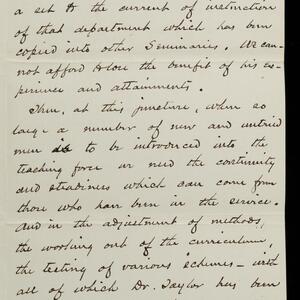 a set to the current of instruction
of that department which has been
copied into other Seminaries. We can-
not afford to lose the benefit of his ex-
perience and attainments.
Then, at this juncture, when so
large a number of new and untried
men is to be introduced into the
teaching force we need the continuity
and steadiness which can come from
those who have been in the service.
And in the adjustment of methods,
the working out of the curriculum,
the testing of various schemes - with
all of which Dr. Taylor has been